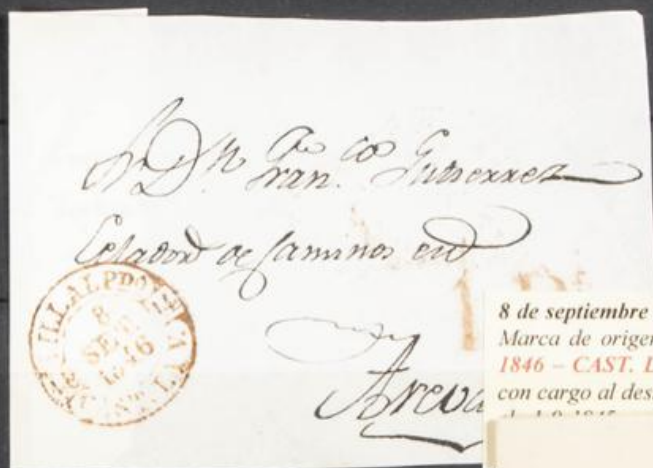 Sr. Dn. Franco. Gutierrez
Celador de Caminos en
Areva
VILLALPDO
8
SET
1846
8 de septiembre
Marca de origen
1846 – CAST. L
con cargo al des